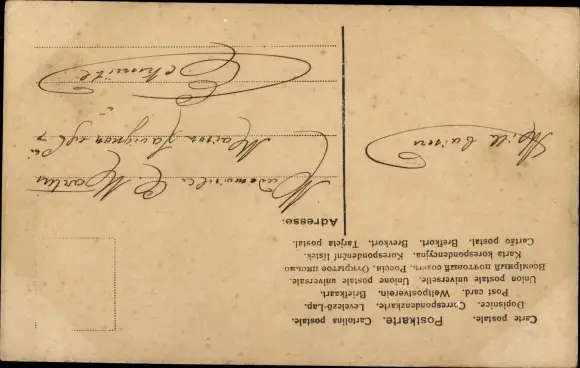 Carte postale. Postkarte. Cartolina postale.
Dopisnice. Correspondenzkarte. Levelező-Lap.
Post card. Weltpostverein. Briefkaart.
Union postale universelle. Unione postale universale.
Всемірный почтовый союзъ. Россія. Открытое письмо
Karta korespondencyjna. Korespondenční lístek.
Cartão postal. Brefkort. Brevkort. Tarjeta postal.
Adresse.
Mille baisers
Mademoiselle C. Martin
Maison